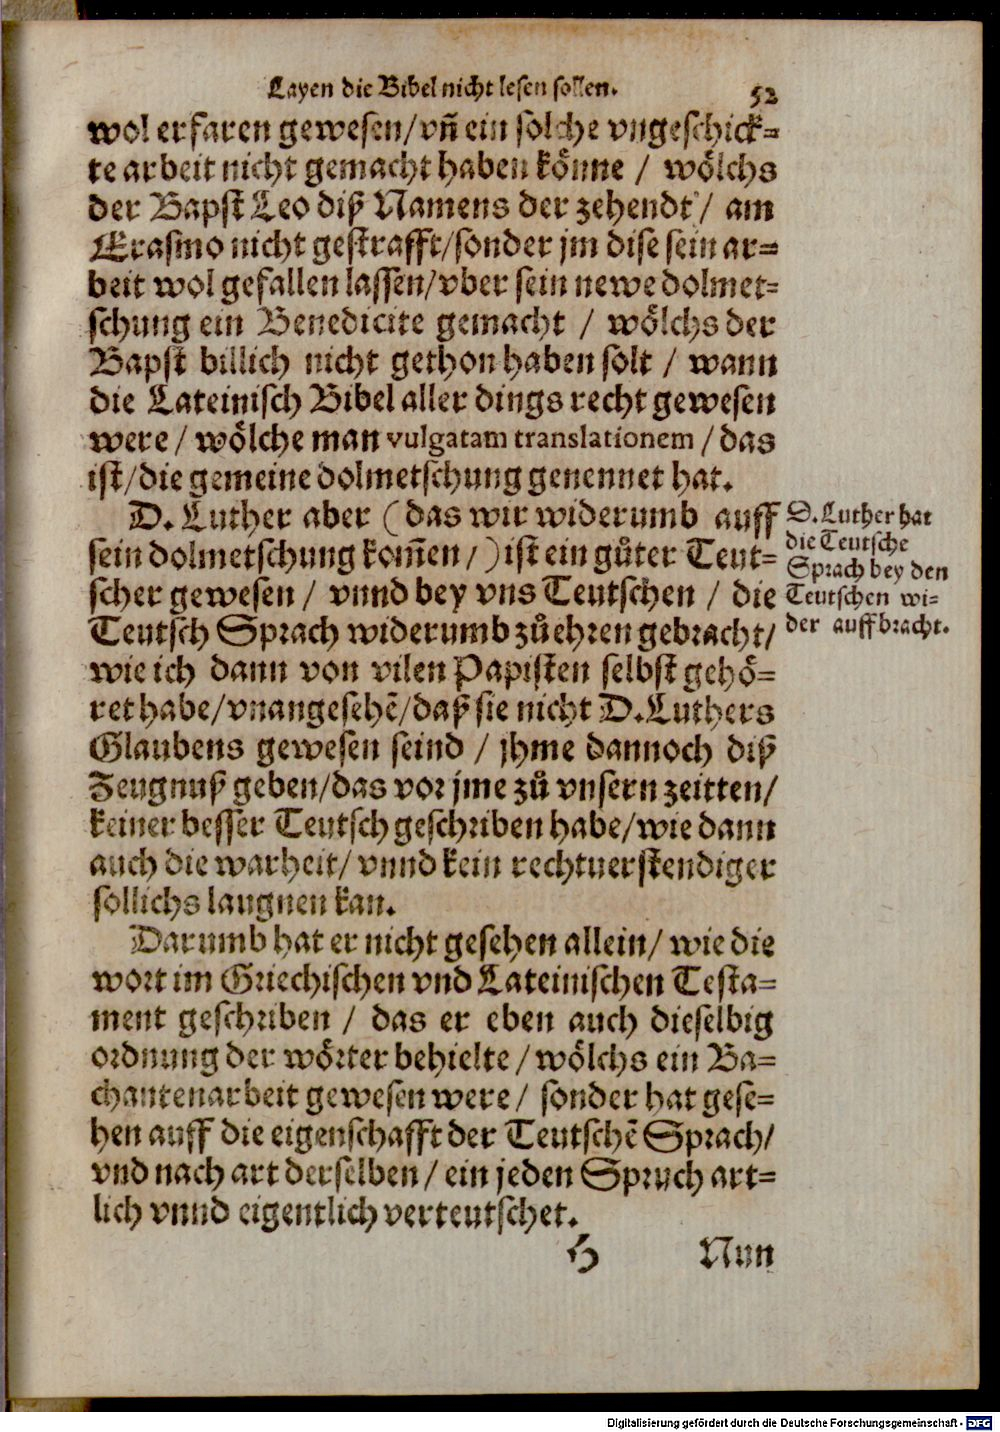 Layen die Bibel nicht lesen sollen. 52
wol erfaren gewesen/vñ ein solche vngeschick=
te arbeit nicht gemacht haben könne / wölchs
der Bapst Leo diß Namens der zehendt / am
Erasmo nicht gestrafft/sonder jm dise sein ar=
beit wol gefallen lassen/vber sein newe dolmet=
schung ein Benedicite gemacht / wölchs der
Bapst billich nicht gethon haben solt / wann
die Lateinisch Bibel aller dings recht gewesen
were / wölche man vulgatam translationem / das
ist/die gemeine dolmetschung genennet hat.
D. Luther aber (das wir widerumb auff
sein dolmetschung kom̃en/) ist ein gůter Teut=
scher gewesen / vnnd bey vns Teutschen / die
Teutsch Sprach widerumb zů ehren gebracht/
wie ich dann von vilen Papisten selbst gehö=
ret habe/vnangesehẽ/daß sie nicht D. Luthers
Glaubens gewesen seind / jhme dannoch diß
Zeugnuß geben/das vor jme zů vnsern zeitten/
keiner besser Teutsch geschriben habe/wie dann
auch die warheit/ vnnd kein rechtuerstendiger
sollichs laugnen kan.
D. Luther hat
die Teutsche
Sprach bey den
Teutschen wi=
der auffbracht.
Darumb hat er nicht gesehen allein/ wie die
wort im Griechischen vnd Lateinischen Testa=
ment geschriben / das er eben auch dieselbig
ordnung der wörter behielte / wölchs ein Ba=
chantenarbeit gewesen were / sonder hat gese=
hen auff die eigenschafft der Teutschẽ Sprach/
vnd nach art derselben / ein jeden Spruch art=
lich vnnd eigentlich verteutschet.
H Nun
Digitalisierung gefördert durch die Deutsche Forschungsgemeinschaft - DFG